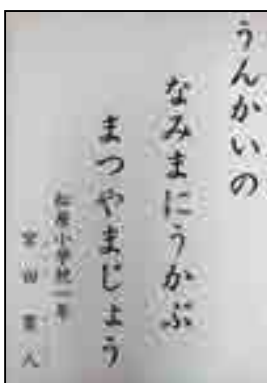 うんかいの
なみまにうかぶ
まつやまじょう
小学校一年